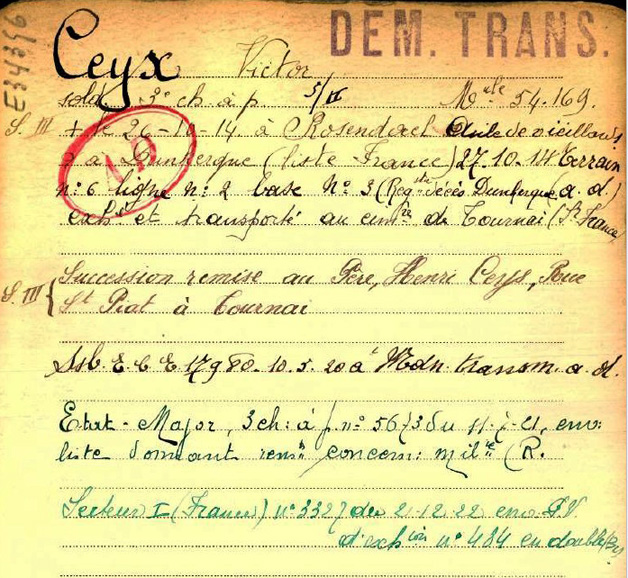 E34396
DEM. TRANS.
Ceyx Victor
sold. 3e ch à p 5/II Mcule 54.169.
S. III + le 26-10-14 à Rosendael Asile de vieillards
à Dunkerque (liste France) 27.10.14 Terrain
n: 6 ligne n: 2 base No 3 (Reg. décès Dunkerque (a. d.)
exh. et transporté au cimre de Tournai (
S. III { Succession remise au Père, Henri Ceyx, Rue
St Piat à Tournai
E C E 10. 5. 20 à Mdn. transm. a. d.
Etat-Major, 3 ch: à p. no 5673 du 11-7-21, env:
liste donnant rens. concern: milre (R.
Secteur I (France) no 3327 du 21-12-22 env. P V
d'exhion no 484 en double